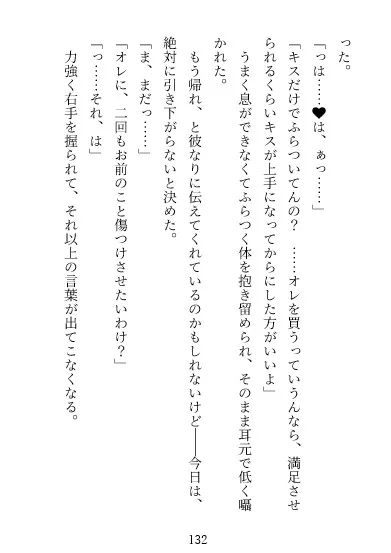 った。
「っは……♥は、ぁっ……」
「キスだけでふらついてんの？　……オレを買うっていうんなら、満足させ
られるくらいキスが上手になってからにした方がいいよ」
　うまく息ができなくてふらつく体を抱き留められ、そのまま耳元で低く囁
かれた。
　もう帰れ、と彼なりに伝えてくれているのかもしれないけど――今日は、
絶対に引き下がらないと決めた。
「ま、まだっ……」
「オレに、二回もお前のこと傷つけさせたいわけ？」
「っ……それ、は」
　力強く右手を握られて、それ以上の言葉が出てこなくなる。
132